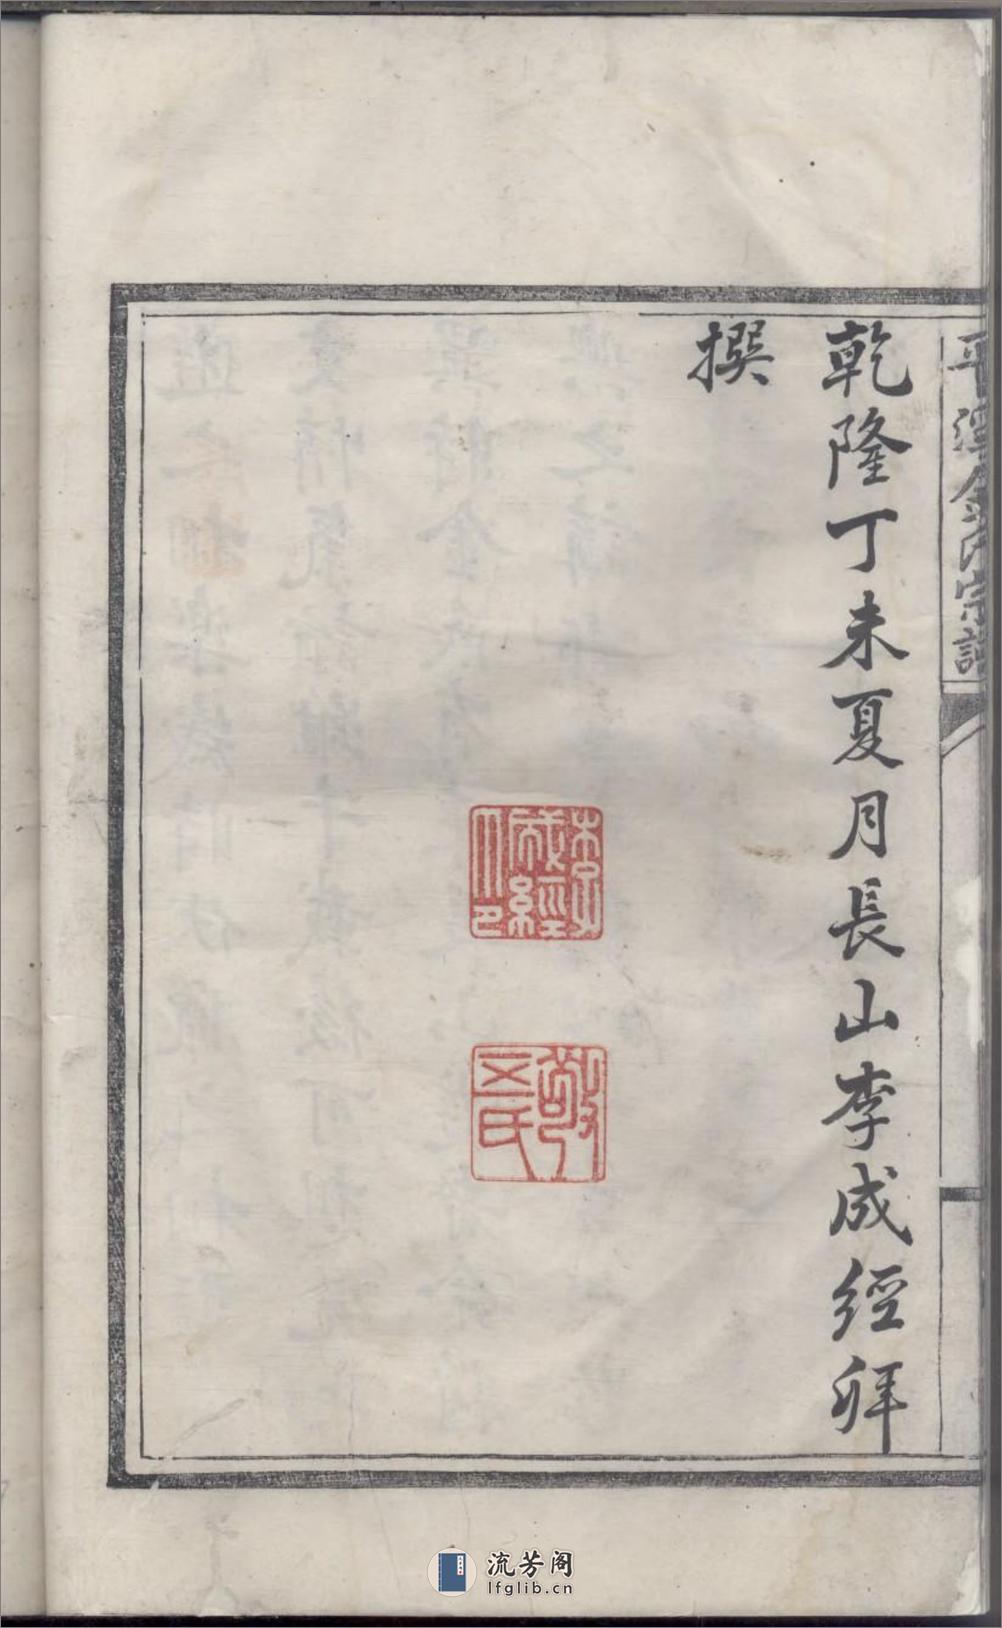 平溪金氏宗譜
乾隆丁未夏月長山李成經拜
撰
李成經印
敬五氏
流芳阁
lfglib.cn